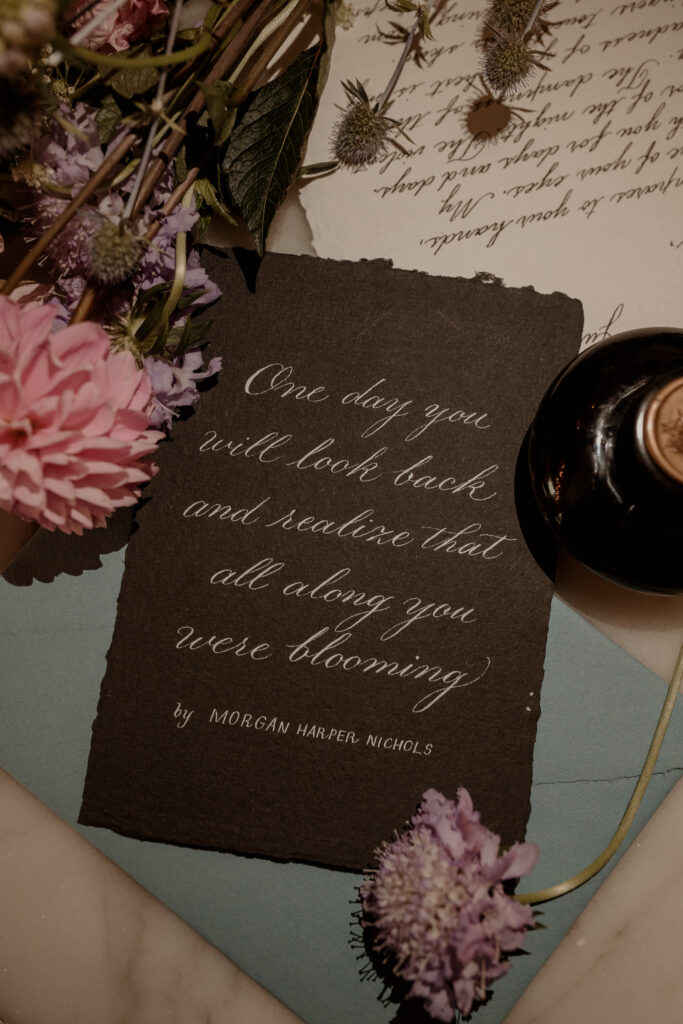 One day you
will look back
and realize that
all along you
were blooming
by MORGAN HARPER NICHOLS
to your hands,
of your eyes. My
you for days and days.
of the night. The
The
of